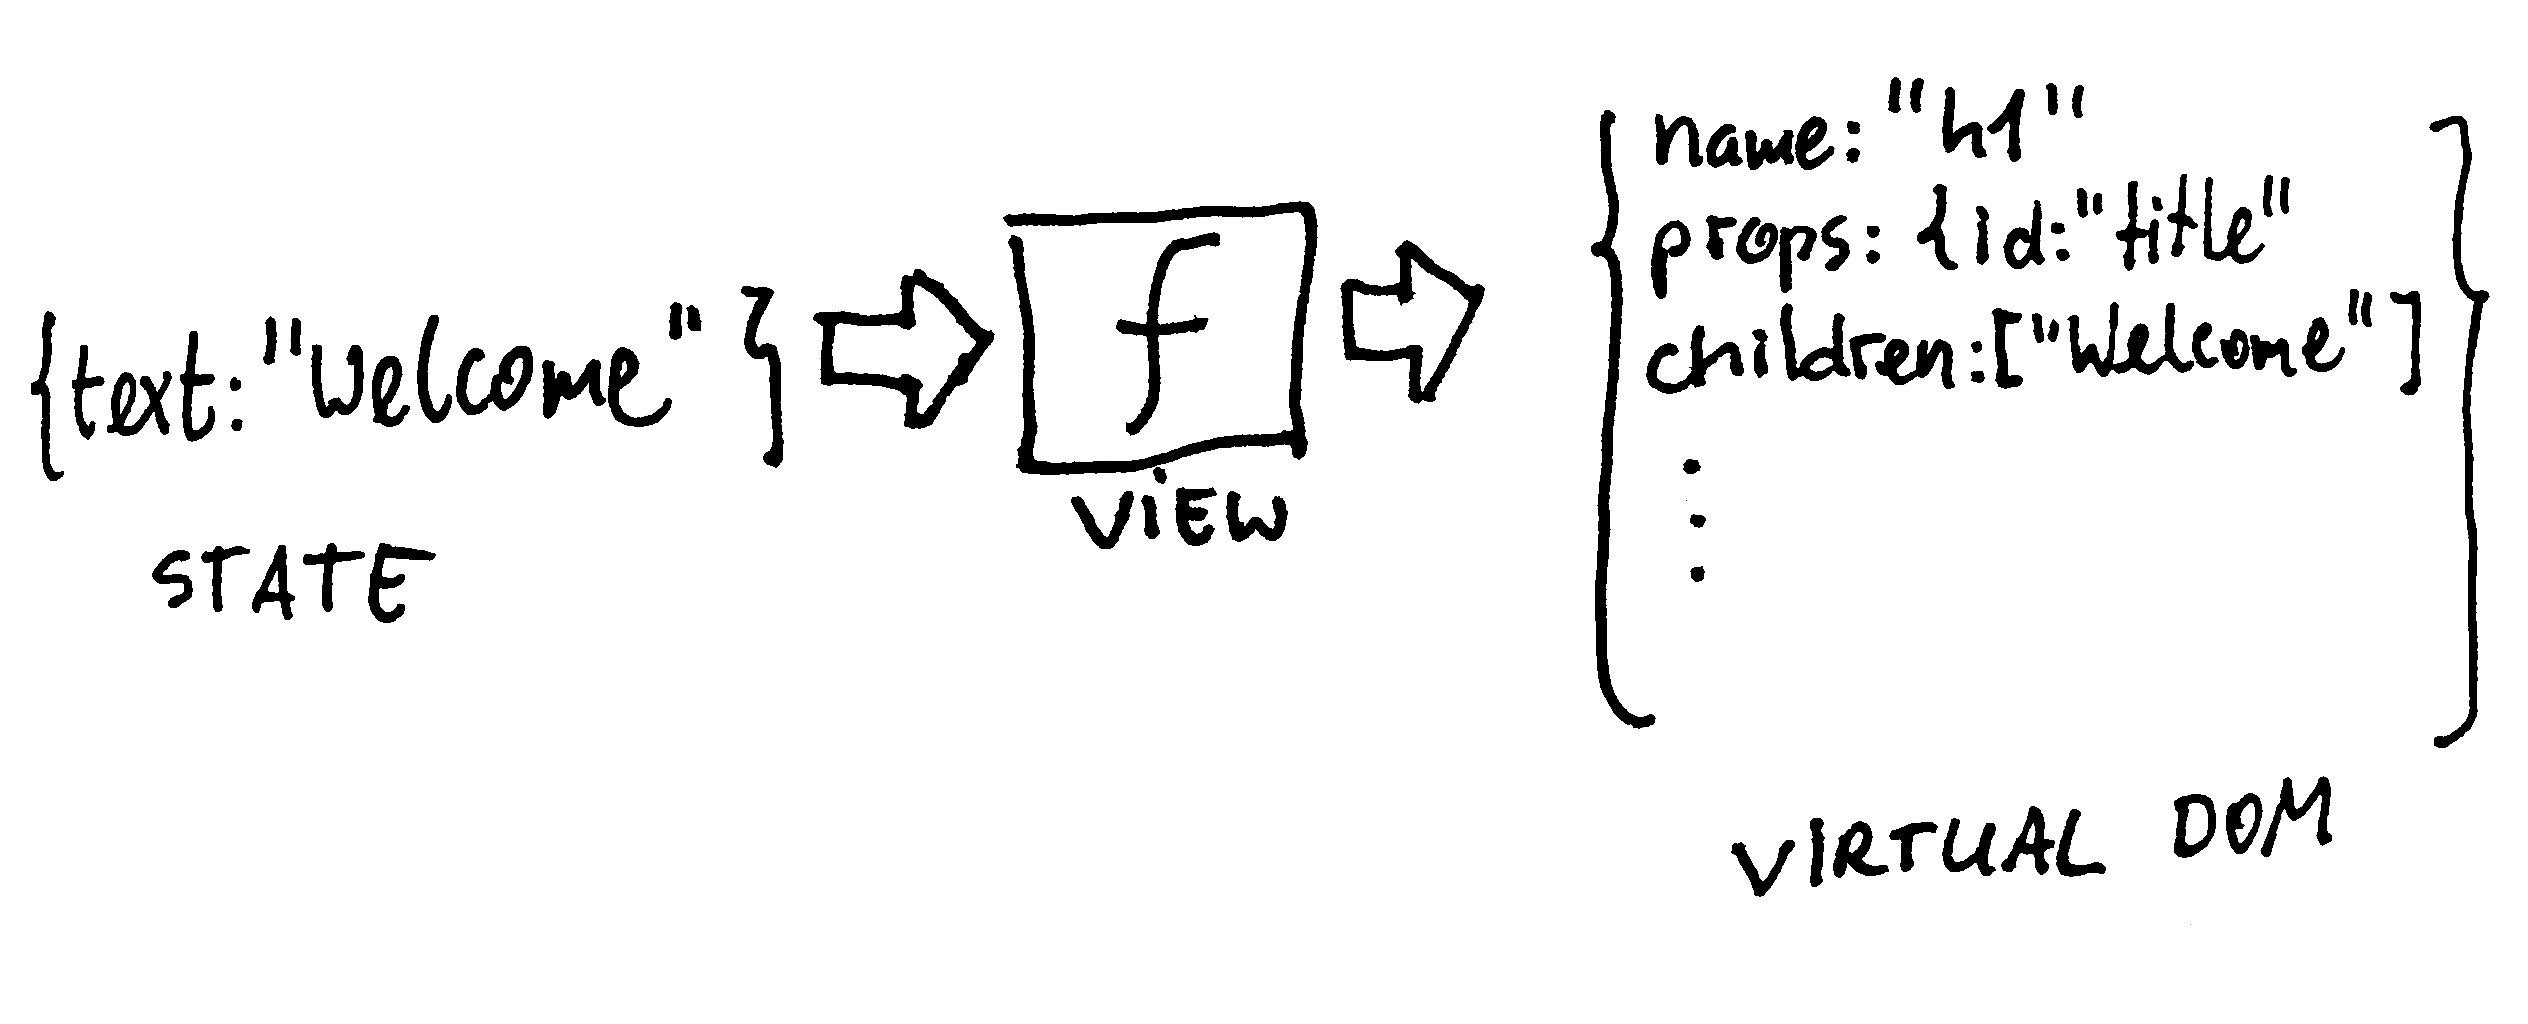 {text: "Welcome"}
STATE
f
ViEW
{name: "h1"
props: {id: "title"
children: ["Welcome"]
.
.
.
}
VIRTUAL DOM